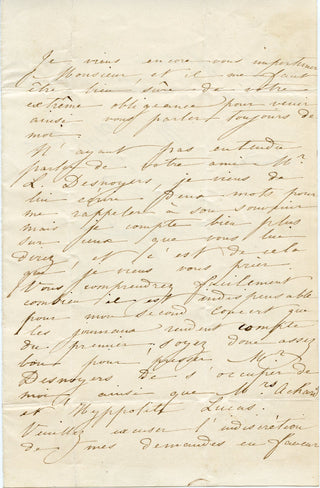 Je viens encore vous importuner
Monsieur, et il me faut
être bien sûre de votre
extrême obligeance pour venir
ainsi vous parler toujours de
moi.
N'ayant pas entendu
parler de votre ami Mr
L. Desnoyers, je viens de
lui écrire deux mots pour
me rappeler à son souvenir
mais je compte bien plus
sur ceux que vous lui
direz et c'est de cela
que je viens vous prier.
Vous comprendrez facilement
combien il est indispensable
pour mon second concert que
les journaux rendent compte
du premier, soyez donc assez
bon pour Mr
Desnoyers de s'occuper de
moi ainsi que Mrs Achard
et Hyppolite Lucas.
Veuillez excuser l'indiscrétion
de mes demandes en faveur